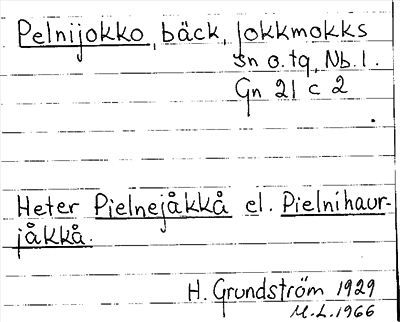 Pelnijokko, bäck, Jokkmokks
sn o. tg, Nb. l.
Gn 21 c 2
Heter Pielnejåkkå el. Pielnihaur-
jåkkå.
H. Grundström 1929
M.L. 1966